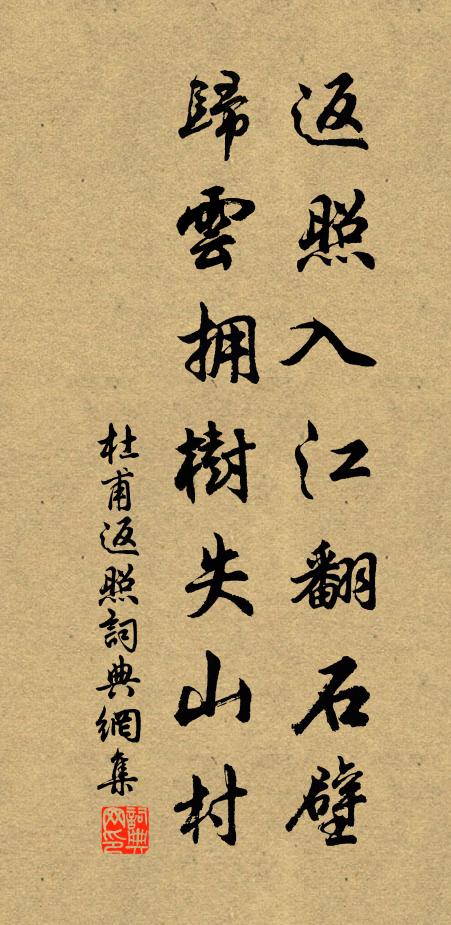 返照入江翻石壁
歸雲拥樹失山村
杜甫返照詞典網集
詞典网印